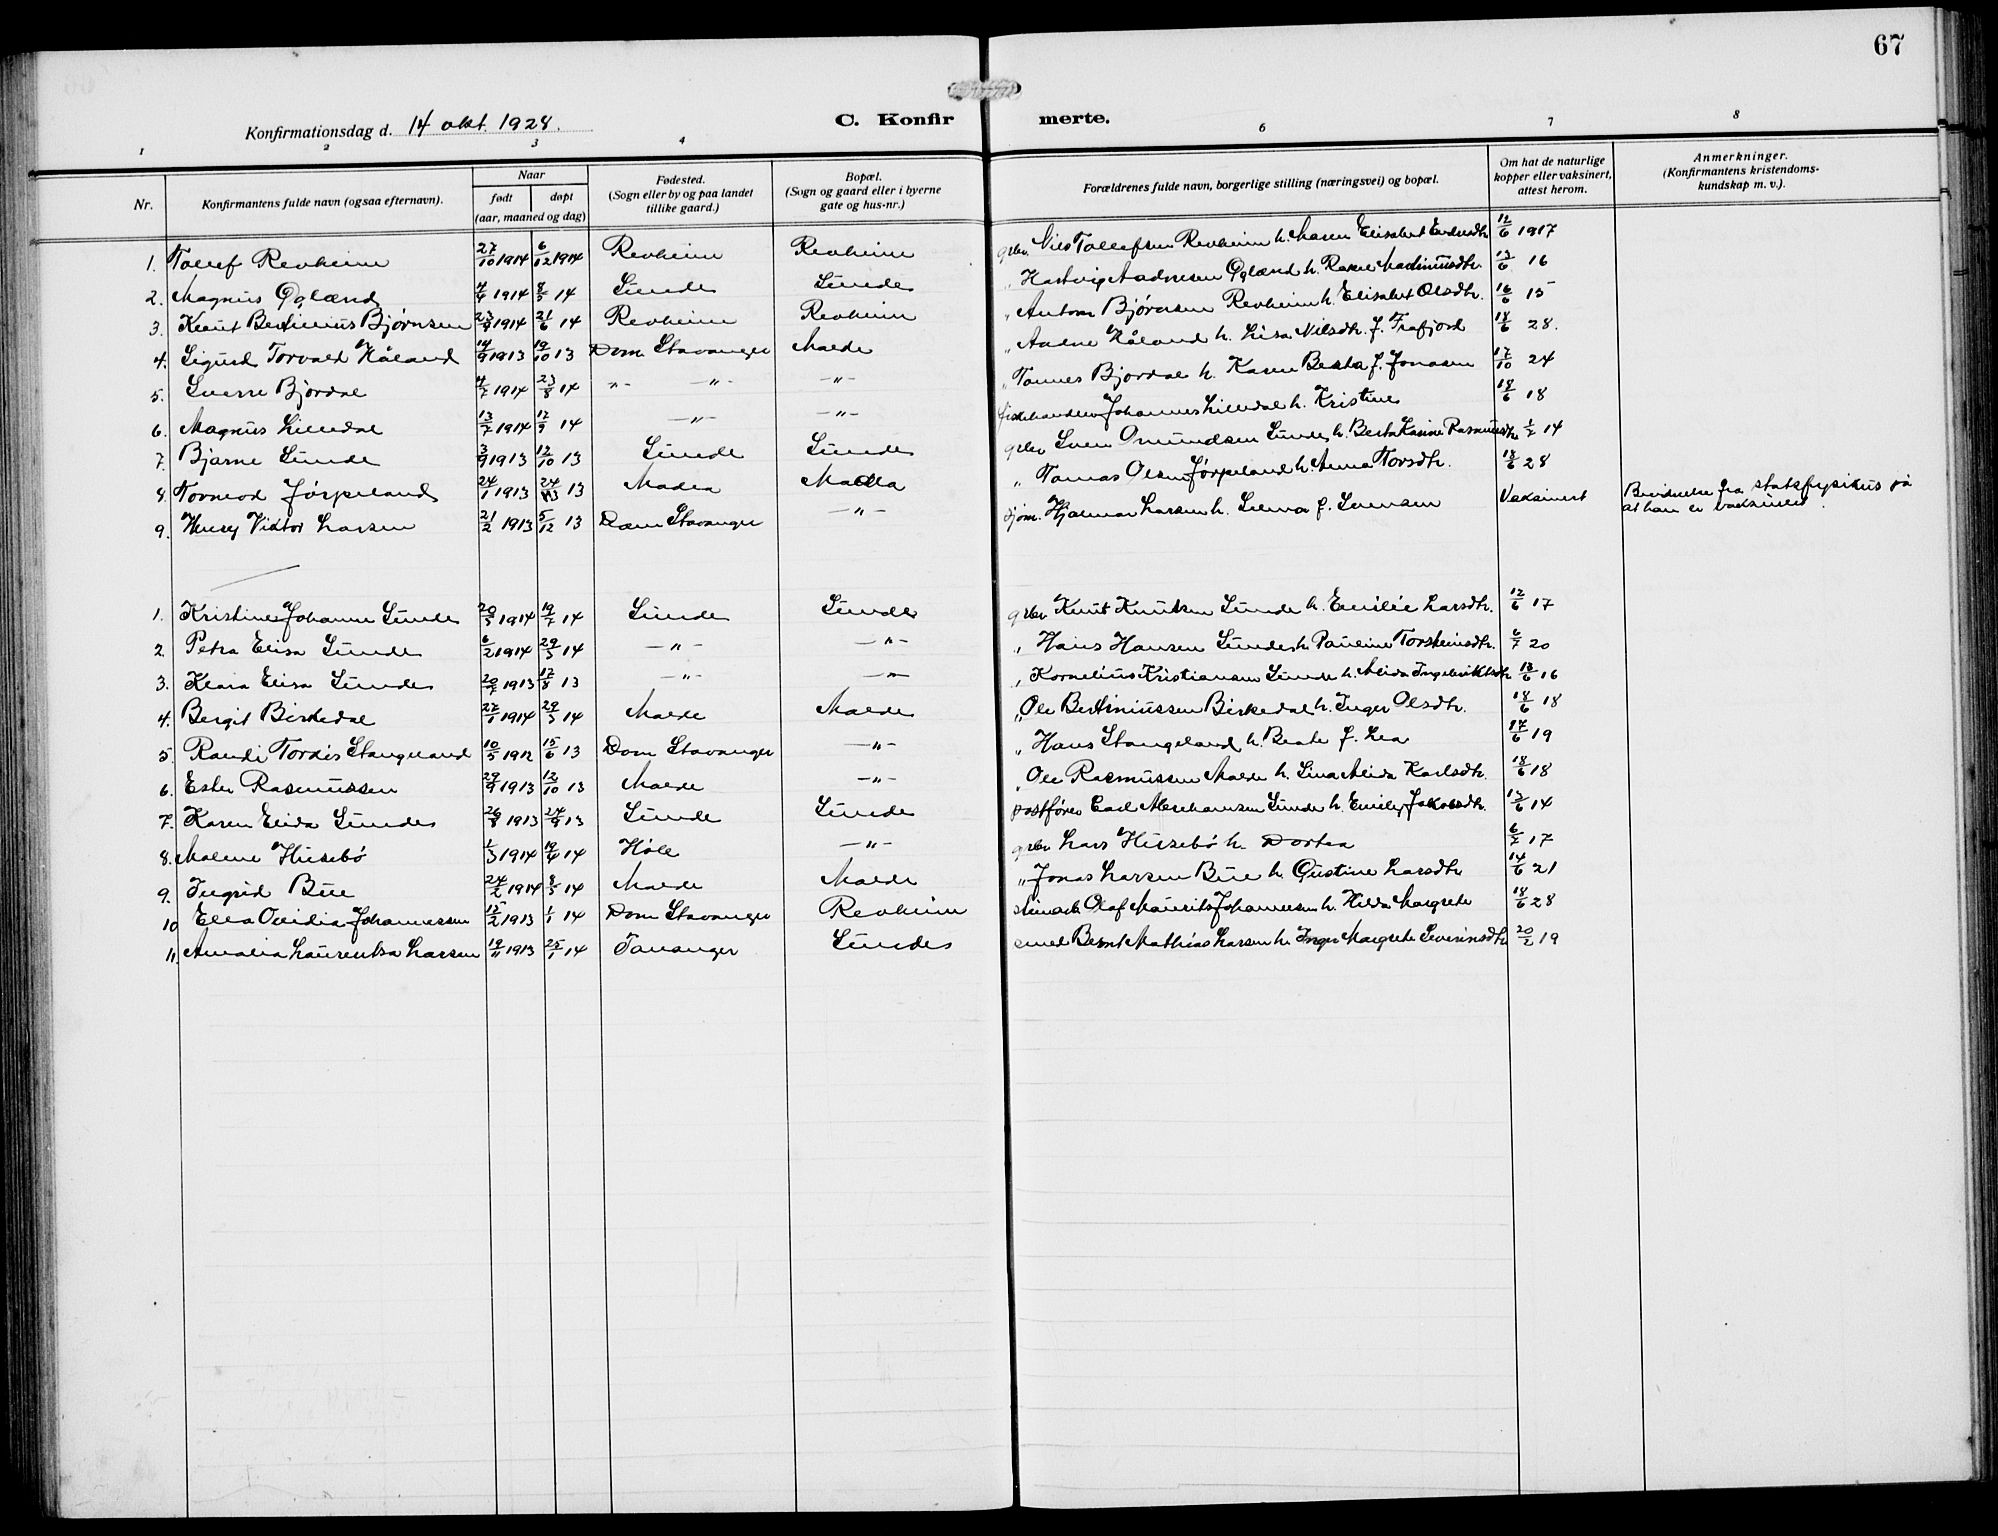 67
Konfirmationsdag d. 14 okt. 1928.
C. Konfir merte.
1 2 3 4 6 7 8
Nr.
Konfirmantens fulde navn (ogsaa efternavn).
Naar
født døpt
(aar, maaned og dag)
Fødested.
(Sogn eller by og paa landet
tillike gaard.)
Bopæl.
(Sogn og gaard eller i byerne
gate og hus-nr.)
Forældrenes fulde navn, borgerlige stilling (næringsvei) og bopæl.
Om hat de naturlige
kopper eller vaksinert,
attest herom.
Anmerkninger.
(Konfirmantens kristendoms-
kundskap m. v.).
1. Tollef Revheim 27/10 1914 6/12 1914 Revheim Revheim grbr. Nils Tollefsen Revheim h. Maren Elisabet Endresdtr. 12/6 1917
2. Magnus Ogland 4/4 1914 8/5 14 Sunde Sunde " Hartvig Aadnesen Ogland h. Rakel 13/6 16
3. Knut Bertinius Bjørnsen 23/4 1914 21/6 14 Revheim Revheim " Anton Bjørnsen Revheim h. Elisabet Olsdtr. 16/6 15
4. Sigurd Torvald Håland 14/9 1913 19/10 13 Dom Stavanger Malde " Aadne Håland h. Lisa Nilsdtr. f. Frafjord 18/6 28.
5. Sverre Bjordal 4/7 1914 23/8 14 -"- -"- -"- " Tønnes Bjordal h. Karen Berta f. Jonasen 17/10 24
6. Magnus Liendal 13/7 1914 12/9 14 -"- -"- fiskehandler Johannes Liendal h. Kristine 18/6 18
7. Bjarne Sunde 3/9 1913 12/10 13 Sunde Sunde grbr Sven Omundsen Sunde h. Berta Karine Rasmusdtr 1/7 14
8. Tormod Jørpeland 24/1 1913 24/3 13 Madla Madla " Tomas Olsen Jørpeland h. Anna Torsdtr. 18/6 28
9. Henry Viktor Larsen 21/2 1913 5/12 13 Dom Stavanger -"- sjøm. Hjalmar Larsen h. Lerna f. Vaksinert Bevidnelse fra statsfysikus på
at han er vaksinert.
1. Kristine Johanne Sunde 20/5 1914 19/7 14 Sunde Sunde grbr Knut Knutsen Sunde h. Emilie Larsdtr. 12/6 17
2. Petra Elisa Sunde 6/2 1914 29/3 14 -"- -"- " Hans Hansen Sunde h. Pauline Torsteinsdtr. 6/7 20
3. Klara Elisa Sunde 20/7 1913 17/8 13 -"- -"- " Kornelius Kristiansen Sunde h. Alida Ingebriktsdtr 13/6 16
4. Bergit Birkedal 27/1 1914 29/3 14 Malde Malde " Ole Bertiniussen Birkedal h. Inger Olsdtr. 18/6 18
5. Randi Tordis Stangeland 10/5 1912 15/6 13 Dom Stavanger -"- " Hans Stangeland h. Beate f. Lea 17/6 19
6. Ester Rasmussen 29/9 1913 12/10 13 Malde -"- " Ole Rasmussen Malde h. Lina Alida Karlsdtr. 18/6 18
7. Karen Elida Sunde 26/8 1913 24/9 13 Sunde Sunde postfører Carl Abrahamsen Sunde h. Emily Jakobsdtr. 13/6 14
8. Malene Husebø 1/3 1914 19/4 14 Høle -"- grbr Lars Husebø h. Dortea 6/7 17
9. Ingrid Bue 24/2 1914 8/3 14 Malde Malde " Jonas Larsen Bue h. Gustine Larsdtr 14/6 21
10 Ella Ovidia Johannessen 15/2 1913 1/1 14 Dom Stavanger Revheim Olaf Mauritz Johannessen h. Hilda Margrete 18/6 28
11. Amalia Laurentsa Larsen 19/11 1913 25/1 14 Tananger Sunde smed Bernt Mathias Larsen h. Inger Margrete Severinsdtr 20/2 19